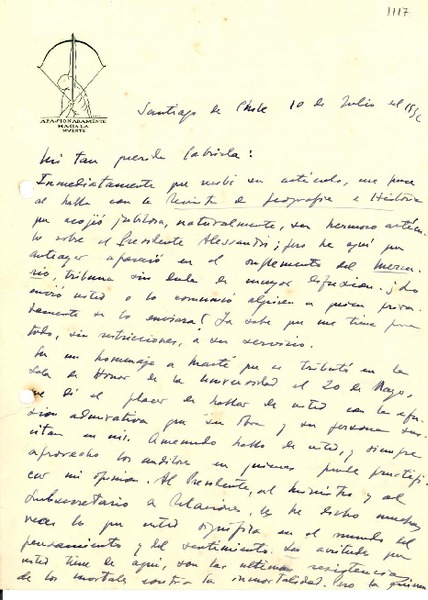 1117
APASIONADAMENTE
HACIA LA
MUERTE
Santiago de Chile 10 de Julio del
Mi tan querida Gabriela:
Inmediatamente que recibí su artículo, me puse
al habla con la Revista de Geografía e Historia
que acogió jubilosa, naturalmente, su hermoso artícu-
lo sobre el Presidente Alessandri; pero he aquí que
anteayer apareció en el suplemento del Mercu-
rio, tribuna sin duda de mayor difusión. ¿Lo
envió usted o lo comunicó alguien a quien priva-
damente se lo enviara? Ya sabe que me tiene para
todo, sin restricciones, a su servicio.
En un homenaje a Martí que se tributó en la
Sala de Honor de la Universidad el 20 de Mayo,
me dí el placer de hablar de usted con la efu-
sión admirativa que su obra y su persona sus-
citan en mí. A menudo hablo de usted, y siempre
aprovecho los auditores en quienes puede fructifi-
car mi opinión. Al Presidente, al ministro y al
Subsecretario de Relaciones, les he dicho muchas
veces lo que usted significa en el mundo del
pensamiento y del sentimiento. Las actitudes que
usted tiene de aquí, son las últimas resistencias
de los mortales contra la inmortalidad. Pero la